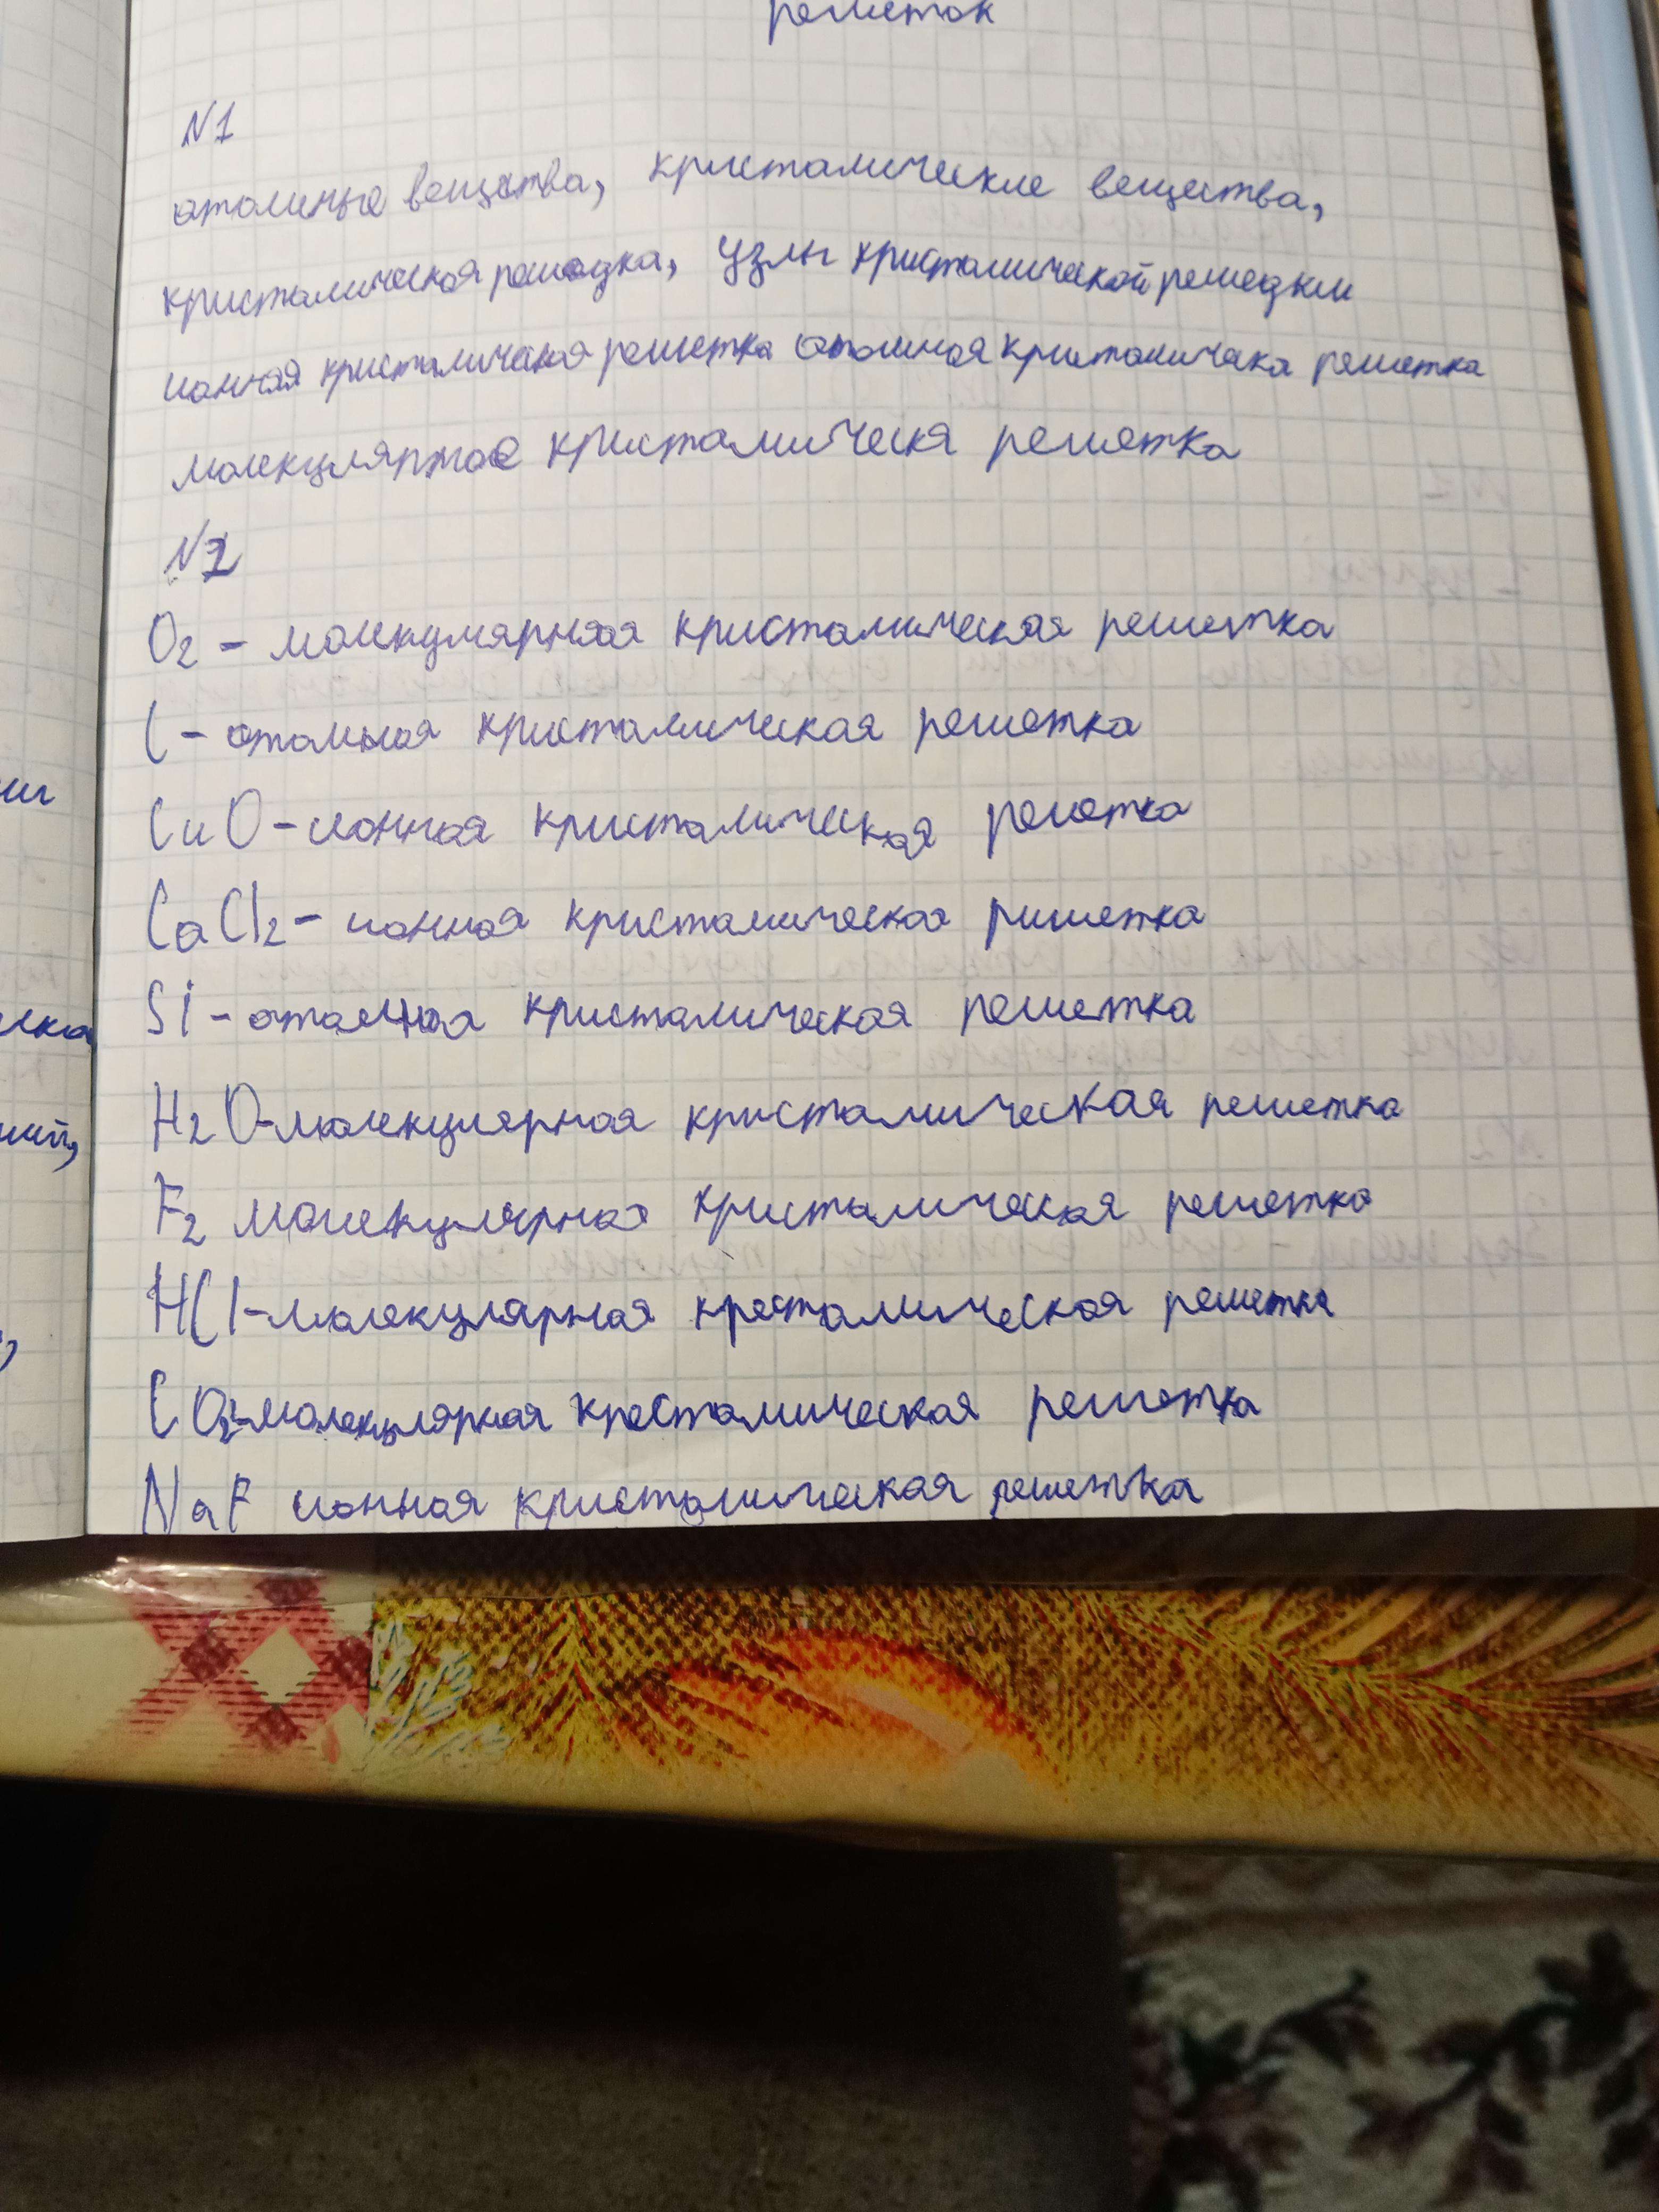 решеток
N1
атомные вещества, кристалические вещества,
кристалическая решодка, узлы кристалической решедки
ионная кристаличекая решетка атомная кристаличека решетка
молекулярное кристалическя решетка
N2
O2 - молекулярная кристалическая решетка
C - атомная кристалическая решетка
CuO - ионная кристалическая решетка
CaCl2 - ионная кристалическая ришетка
Si - атомная кристалическая решетка
H2O - молекулярная кристалическая решетка
F2 молекулярная кристалическая решетка
HCl - молекулярная кресталическая решетка
CO2 - молекулярная кресталическая решетка
NaF ионная кристалическая решетка